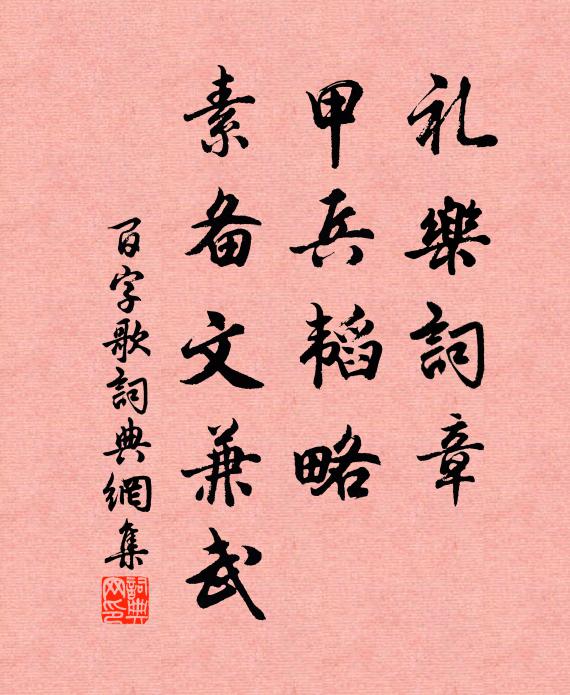 礼樂詞章
甲兵韬略
素备文兼武
百字歌詞典網集
詞典
网印